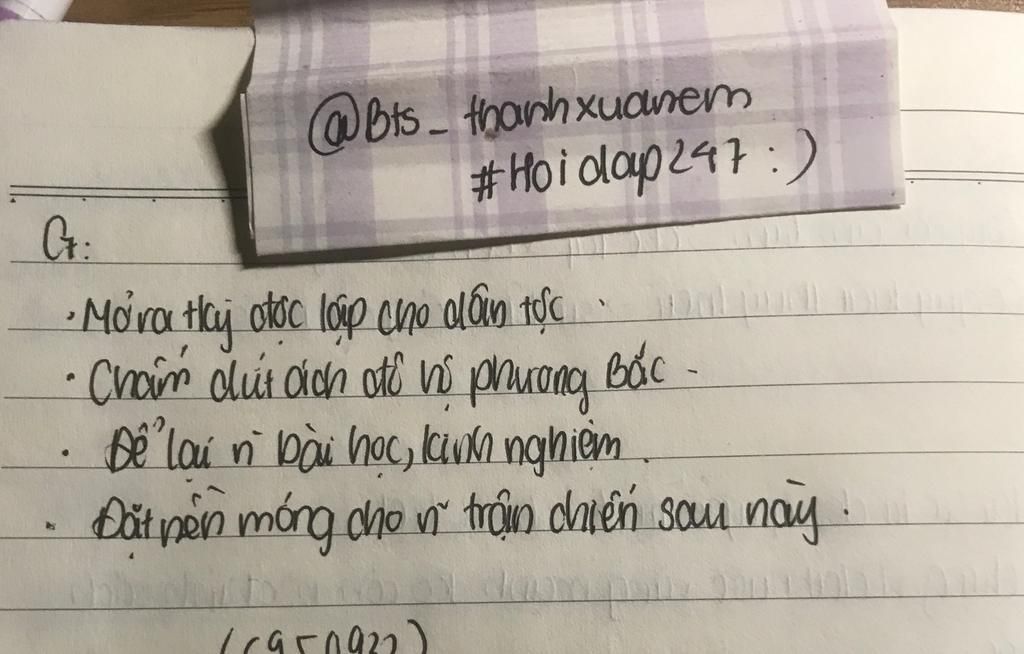 @Bts_thanhxuanem
#Hoidap247 :)
G:
· Mở ra tkỳ độc lập cho dân tộc
· Chấm dứt ách đô hộ phương Bắc -
· Để lại n~ bài học, kinh nghiệm.
· Đặt nền móng cho n~ trận chiến sau này.